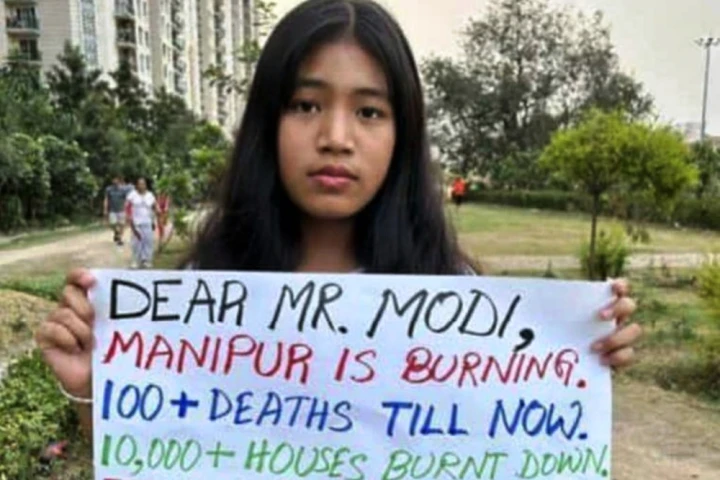 DEAR MR. MODI,
MANIPUR IS BURNING.
100+ DEATHS TILL NOW.
10,000+ HOUSES BURNT DOWN.